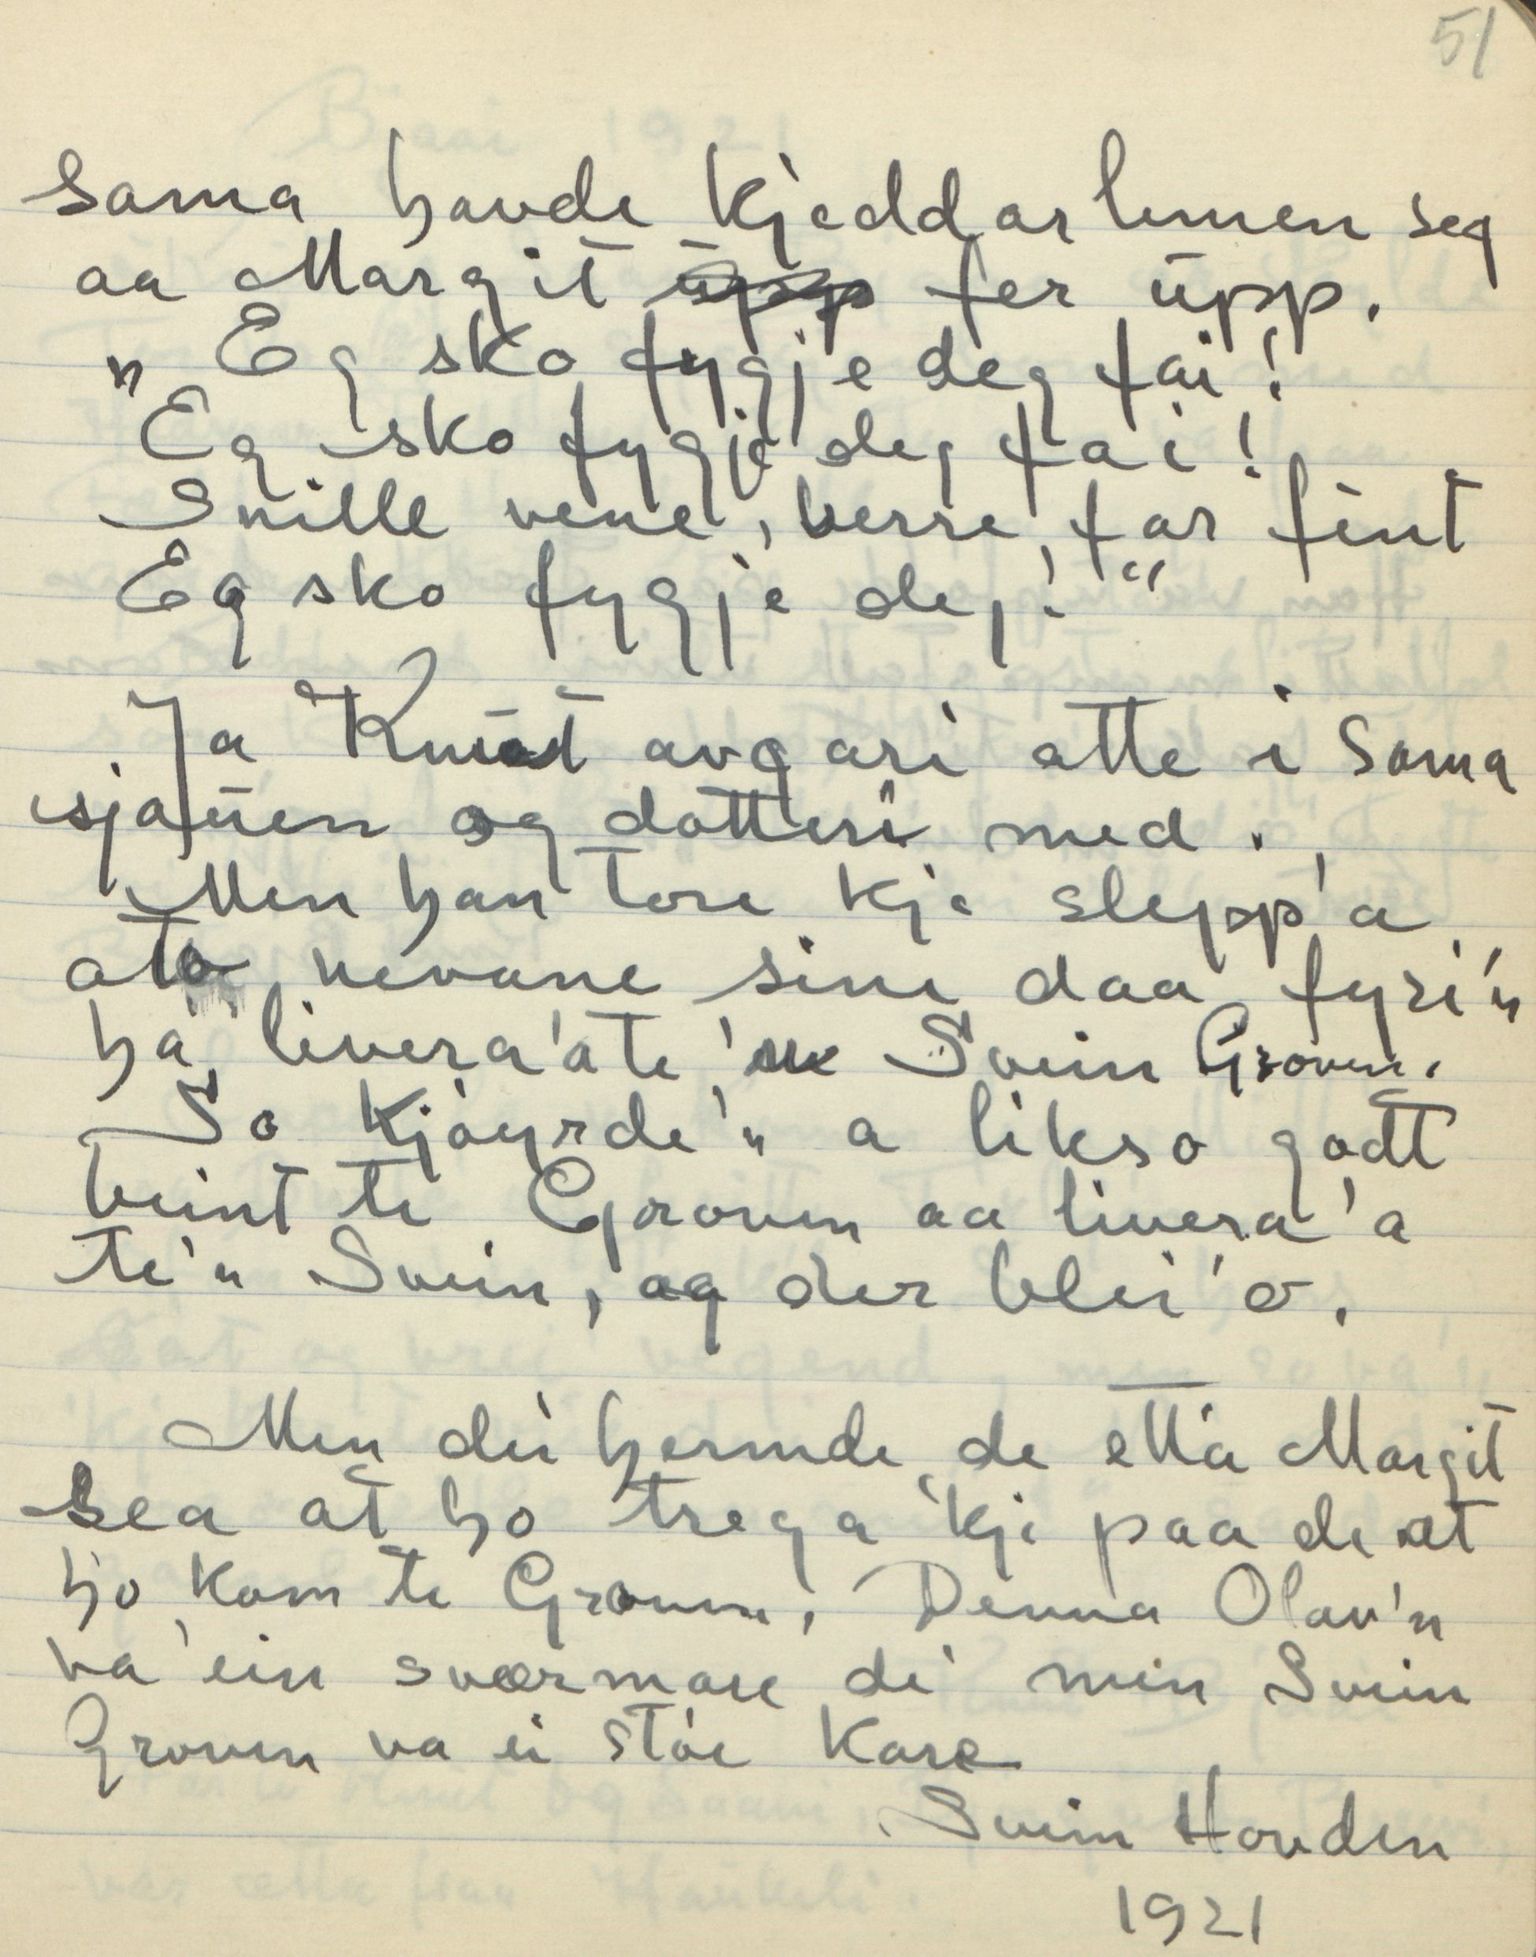 51
sama havde kjeddarlemen seg
aa Margit üpp fer üpp.
„Eg sko fygje deg fai!
Eg sko fygje deg fai!
Snille vene, berre far fint
Eg sko fygje deg!“
Ja Knut avgari atte i sama
sjauen og dotteri med.
Men han tore kje slepp'a
ato nevane sine daa fyri'n
ha' livera'a te 'n Svein Groven.
So kjøyrde'n a likso godt
beint te Groven aa livera'a
te'n Svein, og der blei'o.
Men dei hermde de etta Margit
sea at ho trega 'kje paa de at
ho kom te Groven. Denna Olav'n
va ein sværmare de' men Svein
Groven va ei stóe kare
Svein Hovden
1921